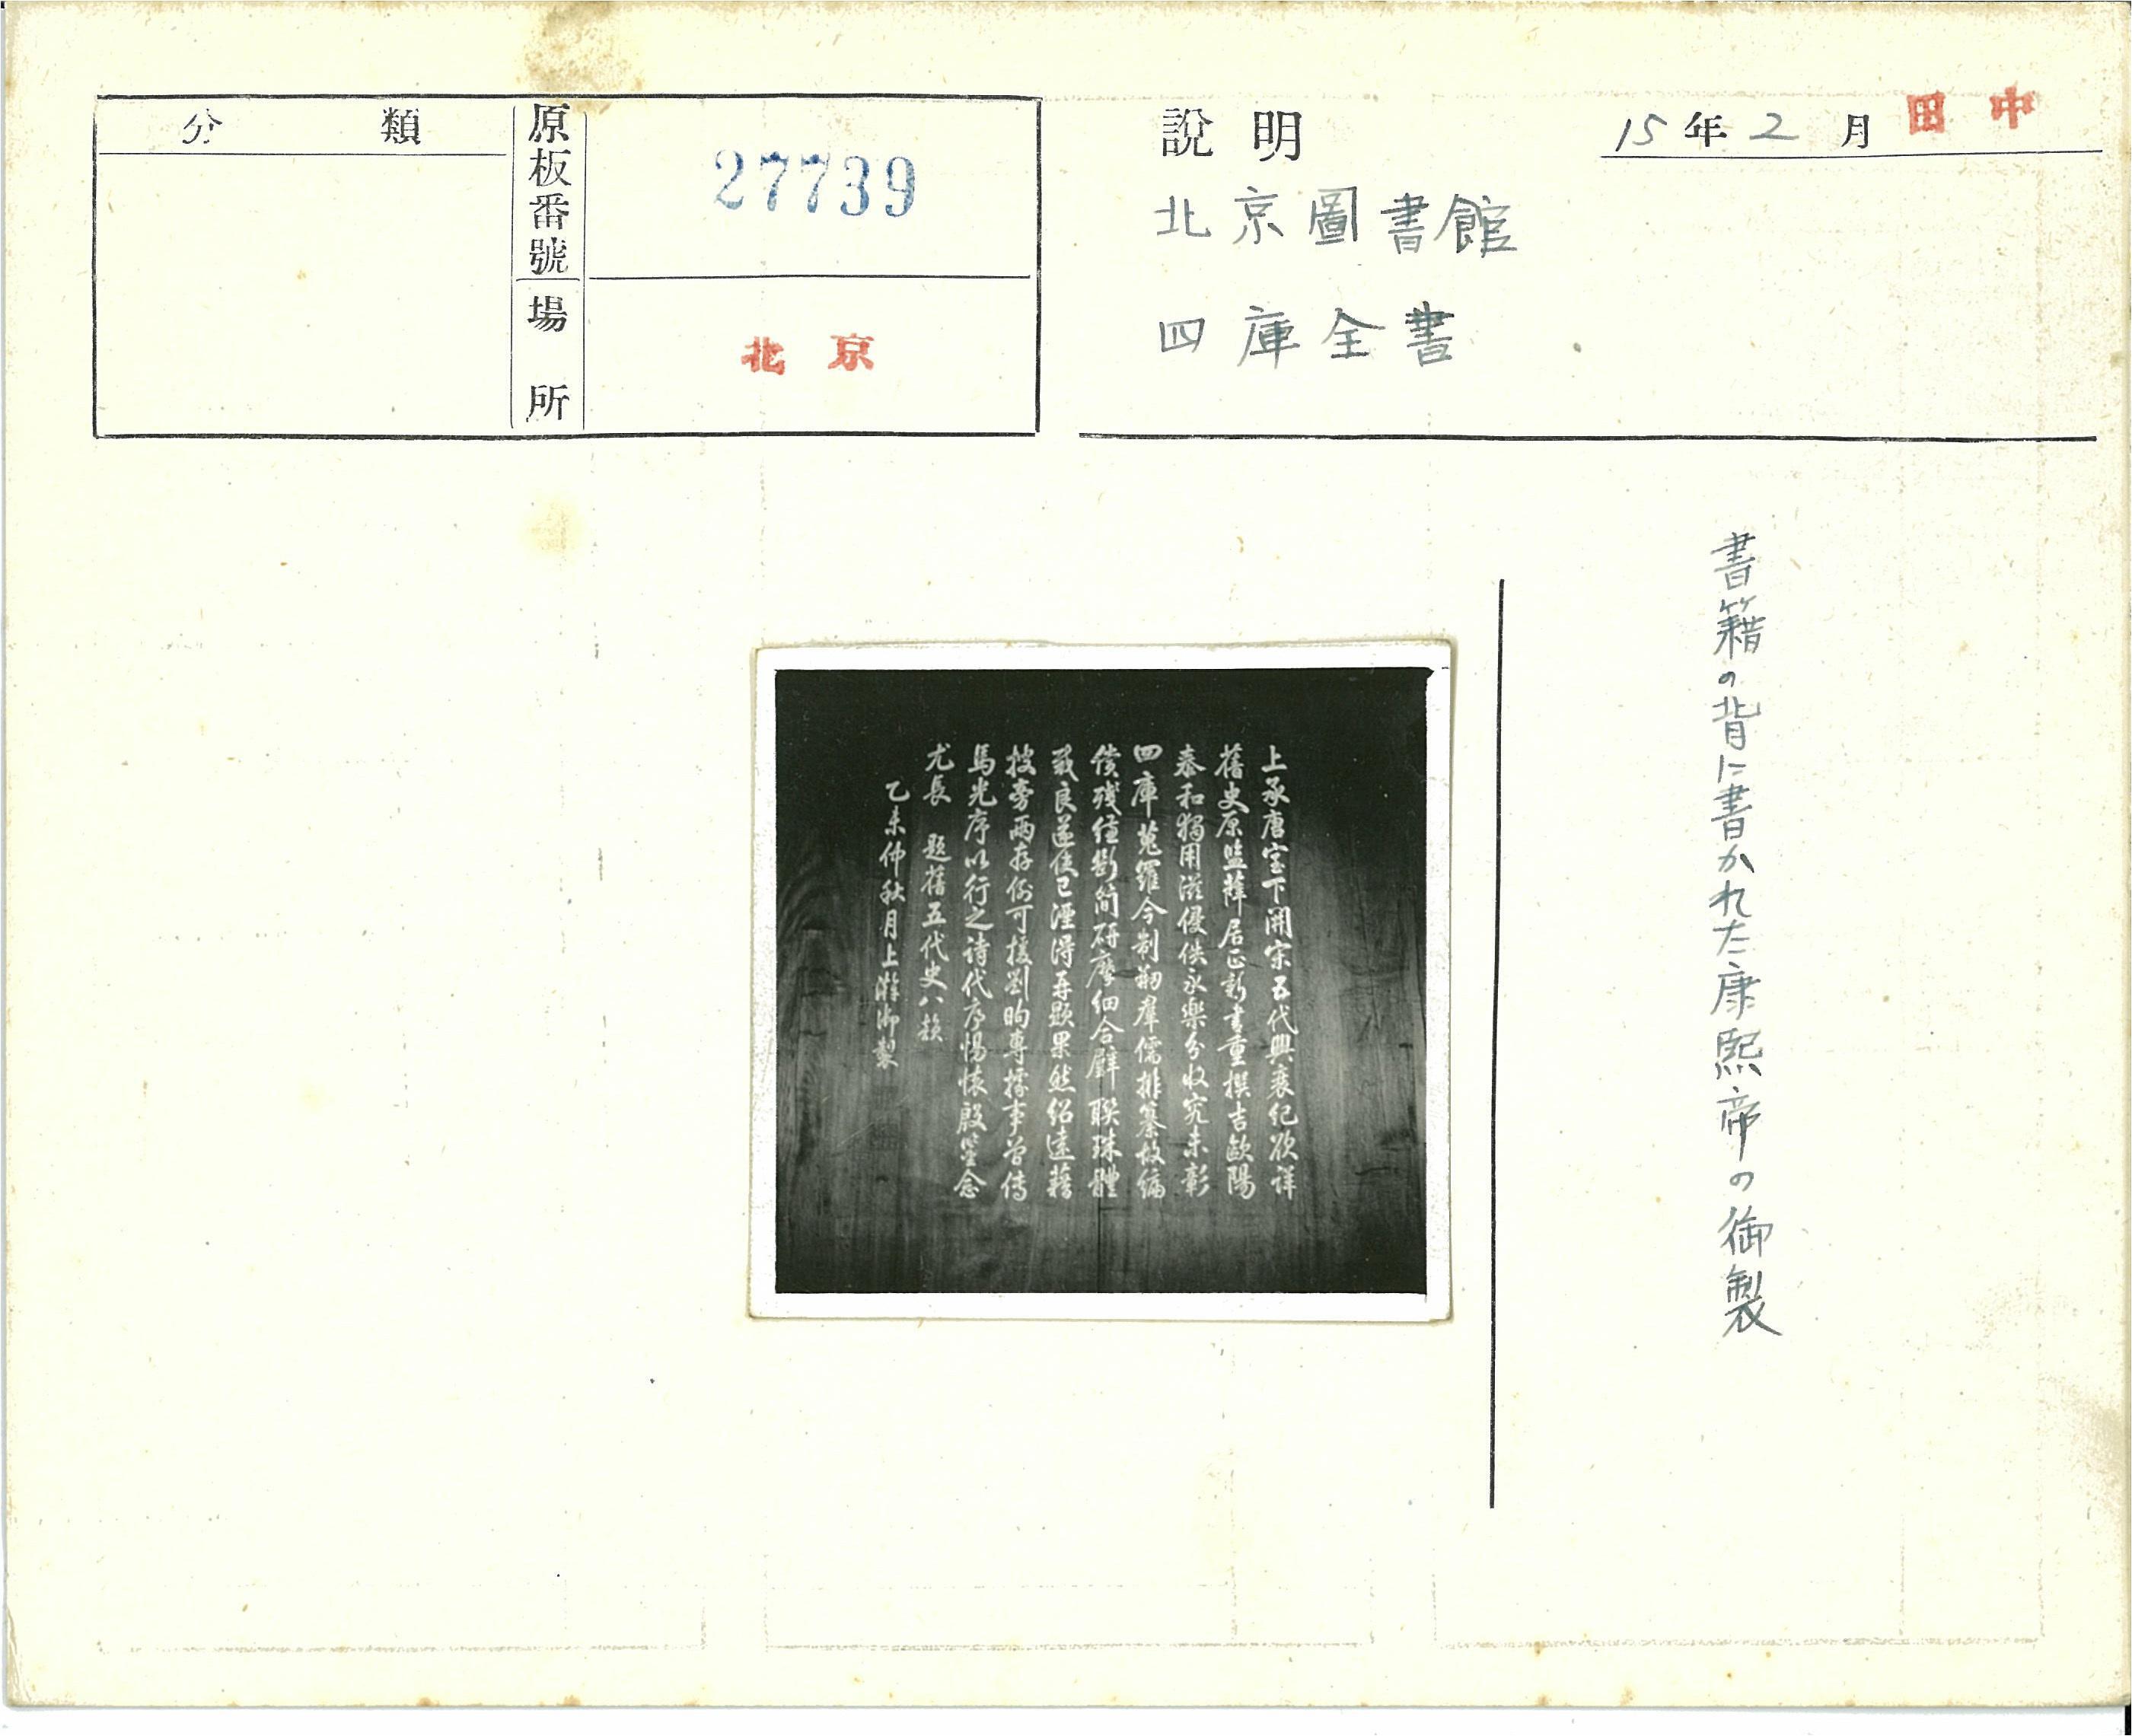 分類
原板番號
27739
場所
北京
說明
15年2月 田中
北京圖書館
四庫全書
書籍の背に書かれた康熙帝の御製
上承唐室下開宋五代興衰紀欲詳
舊史原監薛居正新書重撰吉歐陽
泰和獨用滋侵佚永樂分收究未彰
四庫蒐羅今制刱羣儒排纂故編
償殘縑斷簡研摩細合璧聯珠體
裁良遂使已湮得再顯果然紹遠藉
搜旁兩存例可援劉昫專據事曾傳
馬光序以行之詩代序惕懷殷鑒念
尤長 題舊五代史八韻
乙未仲秋月上澣御製